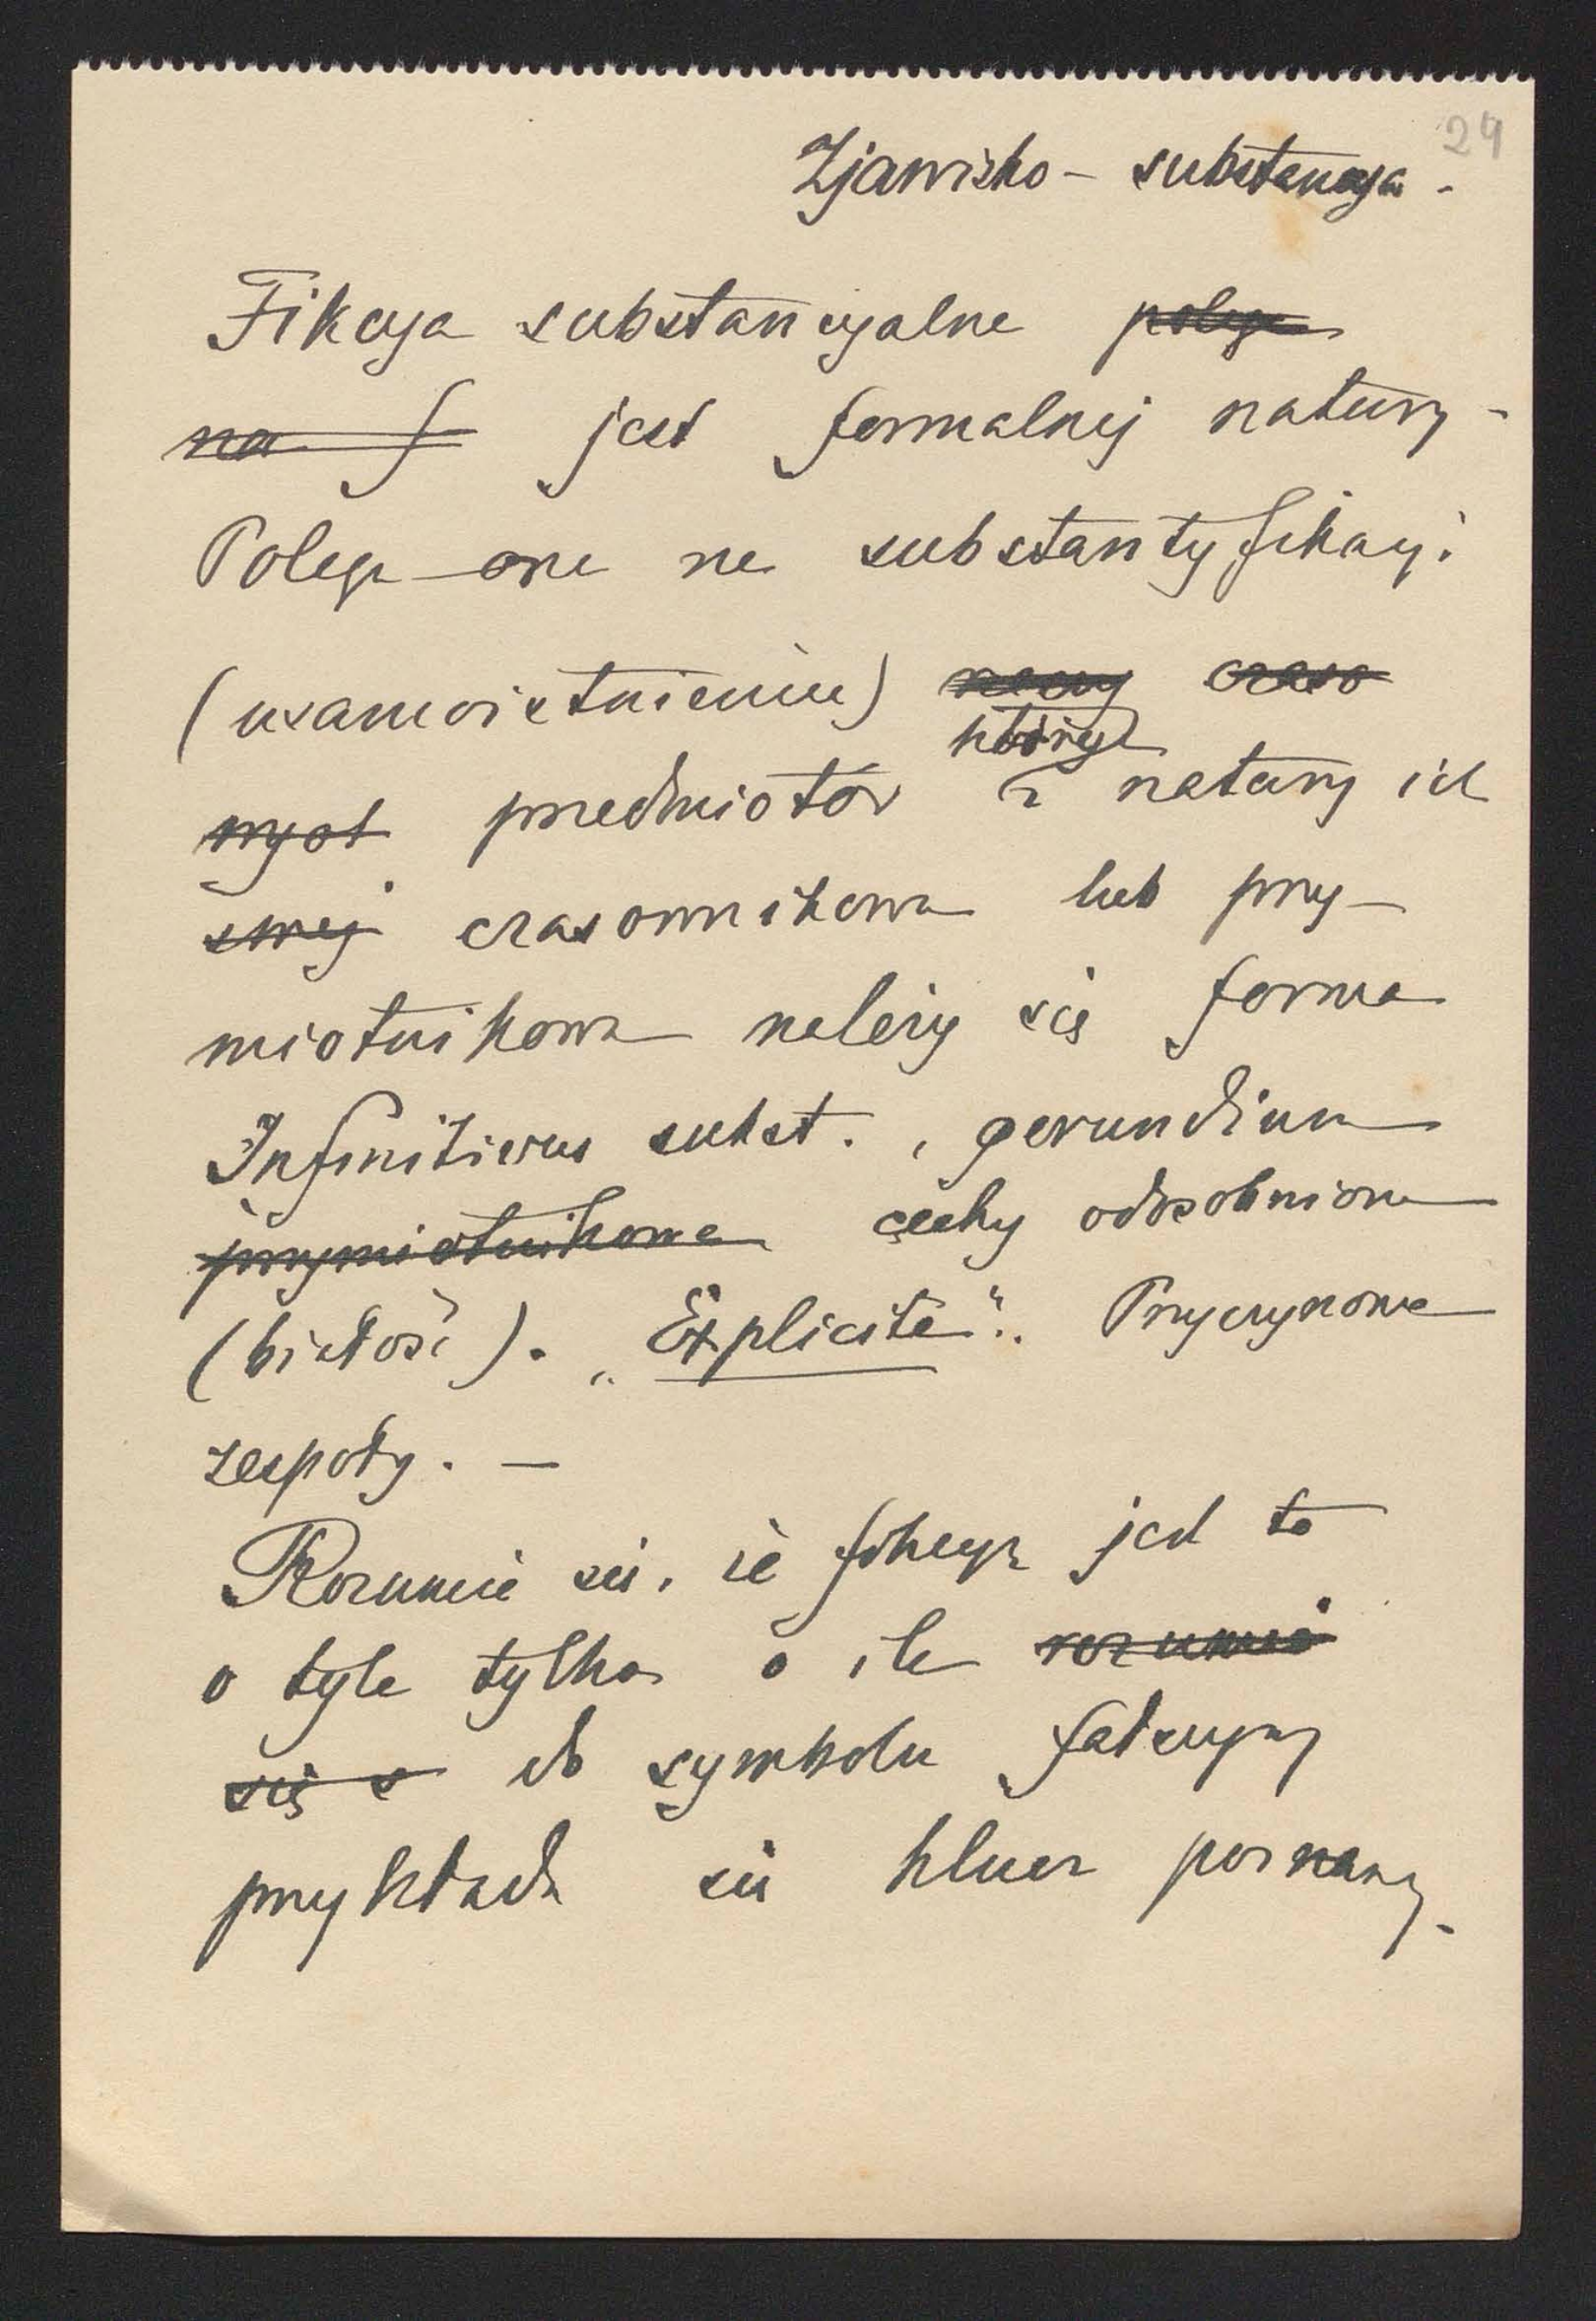 24
Zjawisko – substancya.
Fikcya substancyalna polega
na f jest formalnej natury –
Polega ona na substantyfikacyi
(usamoistnieniu) rzeczy czaso
których
wych przedmiotów z natury ich
swej czasownikowa lub przy–
miotnikowa należy się forma
Infinitivus subst., gerundium
przymiotnikowa cechy odosobnione
(białość). „Explicite”. Przyczynowe
zespoły. –
Rozumie się, że fikcyą jest to
o tyle tylko o ile rozumie
się s do symbolu fałszywy
przykłada się klucz poznawczy.